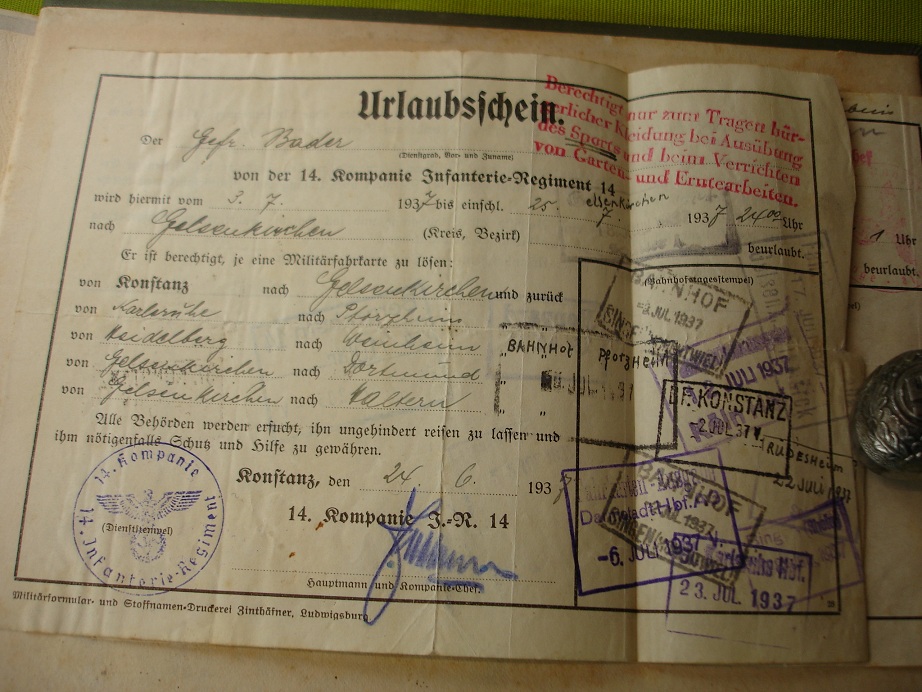 Urlaubsschein.
Berechtigt nur zum Tragen bür-
gerlicher Kleidung bei Ausübung
des Sports und beim Verrichten
von Garten- und Erntearbeiten.
Der Gefr. Bader
(Dienstgrad, Vor- und Zuname)
von der 14. Kompanie Infanterie-Regiment 14
wird hiermit vom 3. 7. 1937 bis einschl. 25. 7. 1937 24 00 Uhr
nach Gelsenkirchen (Kreis, Bezirk) beurlaubt.
Er ist berechtigt, je eine Militärfahrkarte zu lösen:
von Konstanz nach Gelsenkirchen und zurück
von Karlsruhe nach Pforzheim " "
von Heidelberg nach Weinheim " "
von Gelsenkirchen nach Dortmund " "
von Gelsenkirchen nach Haltern " "
Alle Behörden werden ersucht, ihn ungehindert reisen zu lassen und
ihm nötigenfalls Schutz und Hilfe zu gewähren.
Konstanz, den 24. 6. 1937
14. Kompanie J.-R. 14
Hauptmann und Kompanie-Chef.
14. Kompanie
14. Infanterie-Regiment
(Dienststempel)
Militärformular- und Stoffnamen-Druckerei Zinthäfner, Ludwigsburg
(Bahnhofstagesstempel)
BAHNHOF
JUL 1937
SINGEN
BAHNHOF Pforzheim
JULI 1937
BF. KONSTANZ
2. JUL. 37 V.
RÜDESHEIM
22 JULI 1937
BAHNHOF
SINGEN
-6. JULI 1937
Karlsruhe Hbf.
23. JUL. 1937
Uhr
beurlaubt.